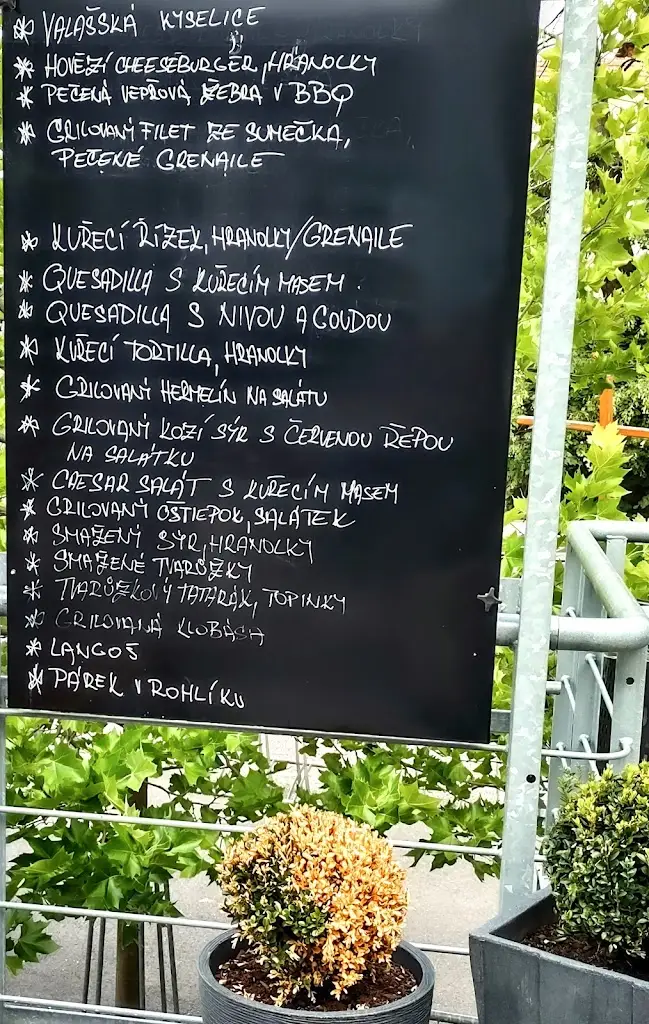 * VALAŠSKÁ KYSELICE
* HOVĚZÍ CHEESEBURGER, HRANOLKY
* PEČENÁ VEPŘOVÁ ŽEBRA V BBQ
* GRILOVANÝ FILET ZE SUMEČKA,
PEČENÉ GRENAILE
* KUŘECÍ ŘÍZEK, HRANOLKY/GRENAILE
* QUESADILLA S KUŘECÍM MASEM
* QUESADILLA S NIVOU A GOUDOU
* KUŘECÍ TORTILLA, HRANOLKY
* GRILOVANÝ HERMELÍN NA SALÁTU
* GRILOVANÝ KOZÍ SÝR S ČERVENOU ŘEPOU
NA SALÁTKU
* CAESAR SALÁT S KUŘECÍM MASEM
* GRILOVANÝ OŠTIEPOK, SALÁTEK
* SMAŽENÝ SÝR, HRANOLKY
* SMAŽENÉ TVARŮŽKY
* TVARŮŽKOVÝ TATARÁK, TOPINKY
* GRILOVANÁ KLOBÁSA
* LANGOŠ
* PÁREK V ROHLÍKU